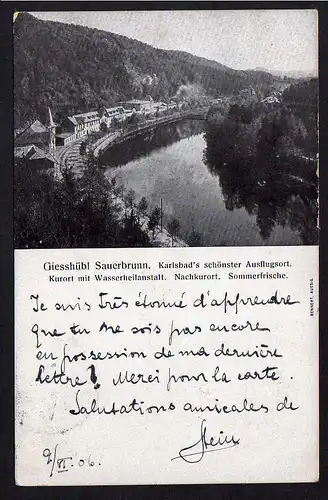 Giesshübl Sauerbrunn. Karlsbad's schönster Ausflugsort.
Kurort mit Wasserheilanstalt. Nachkurort. Sommerfrische.
Je suis très étonné d'apprendre
que tu ne sois pas encore
en possession de ma dernière
lettre! Merci pour la carte.
Salutations amicales de
Stein
9/VI. 06.